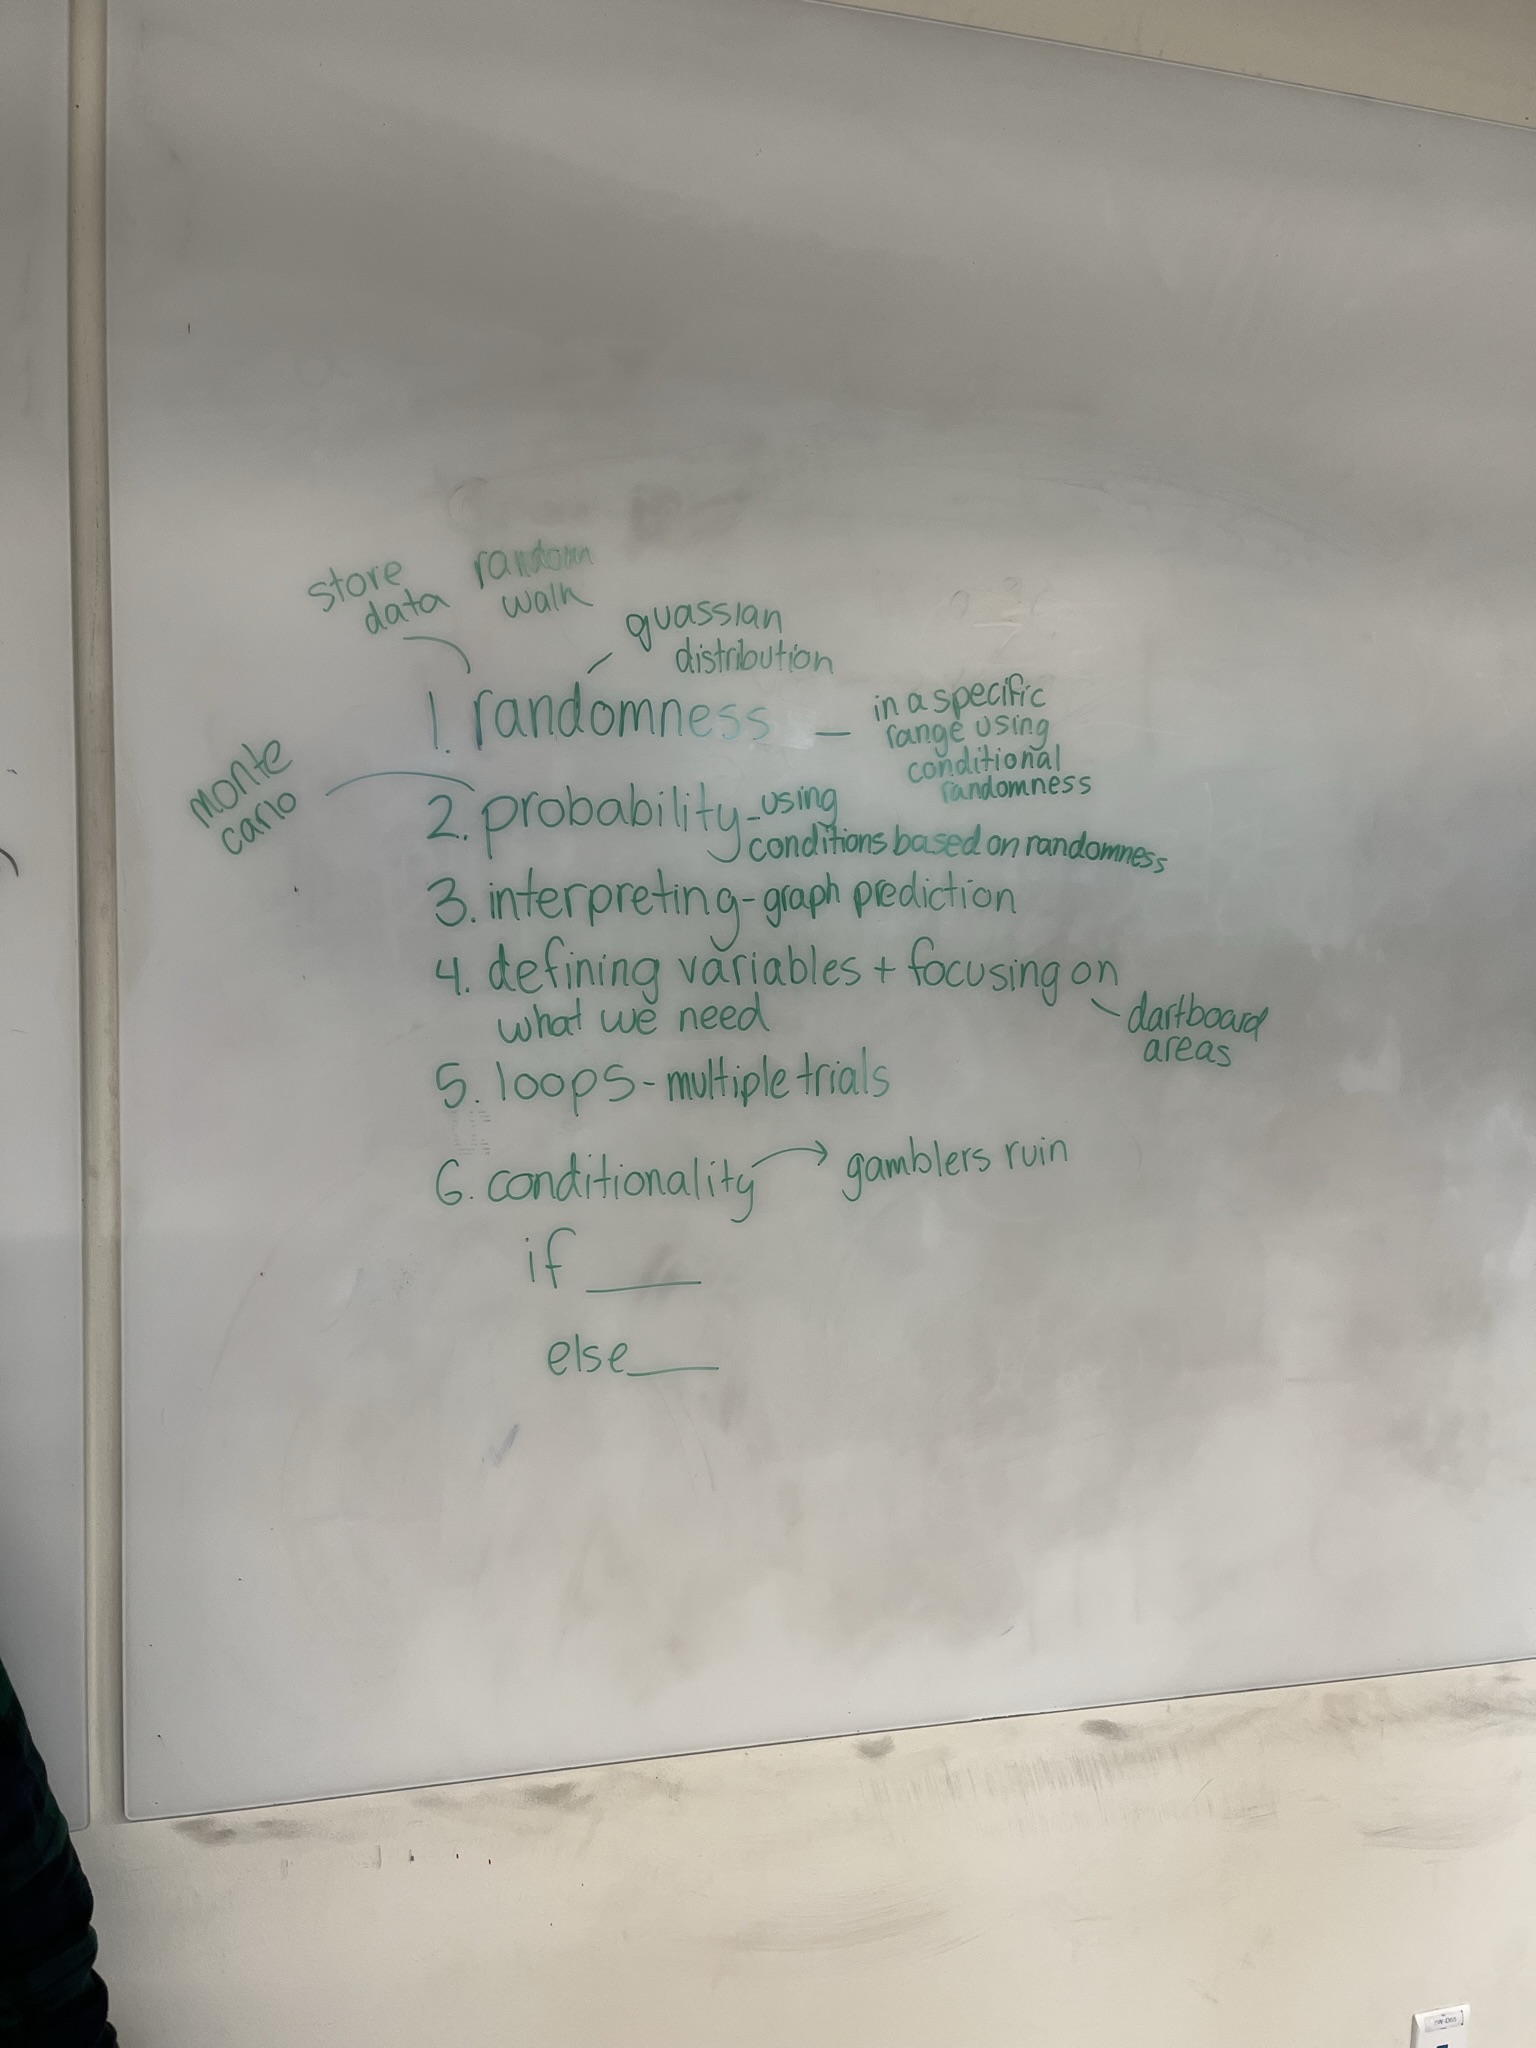 store
data
random
walk
guassian
distribution
1. randomness — in a specific
range using
conditional
randomness
monte
carlo
2. probability - using
conditions based on randomness
3. interpreting - graph prediction
4. defining variables + focusing on
what we need
dartboard
areas
5. loops - multiple trials
6. conditionality → gamblers ruin
if ____
else ____